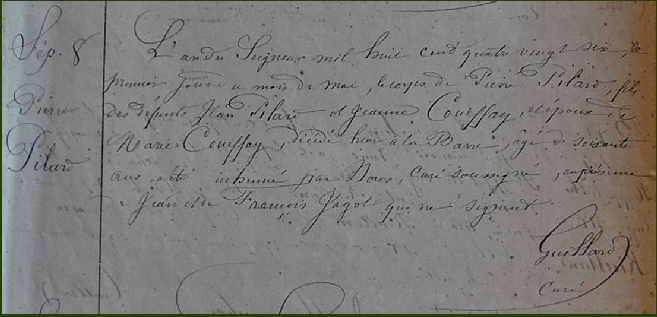 Sép. 8
Pierre
Pilard
L'an du Seigneur mil huit cent quatre vingt six, le
premier jour u mois de mai, le corps de Pierre Pilard, fils
des défunts Jean Pilard et Jeanne Coueffay, et époux de
Marie Coueffay, décédé hier à la Barre, âgé de soixante
ans, a été inhumé par Nous, Curé soussigné, en présence
de Jean et de François Jagot qui ne signent.
Guillard
Curé